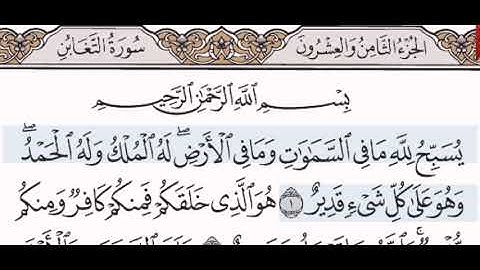 الجزء الثامن والعشرون سورة التغابن
بِسْمِ اللَّهِ الرَّحْمَٰنِ الرَّحِيمِ
يُسَبِّحُ لِلَّهِ مَا فِي السَّمَاوَاتِ وَمَا فِي الْأَرْضِ ۖ لَهُ الْمُلْكُ وَلَهُ الْحَمْدُ ۖ
وَهُوَ عَلَىٰ كُلِّ شَيْءٍ قَدِيرٌ ١ هُوَ الَّذِي خَلَقَكُمْ فَمِنكُمْ كَافِرٌ وَمِنكُم